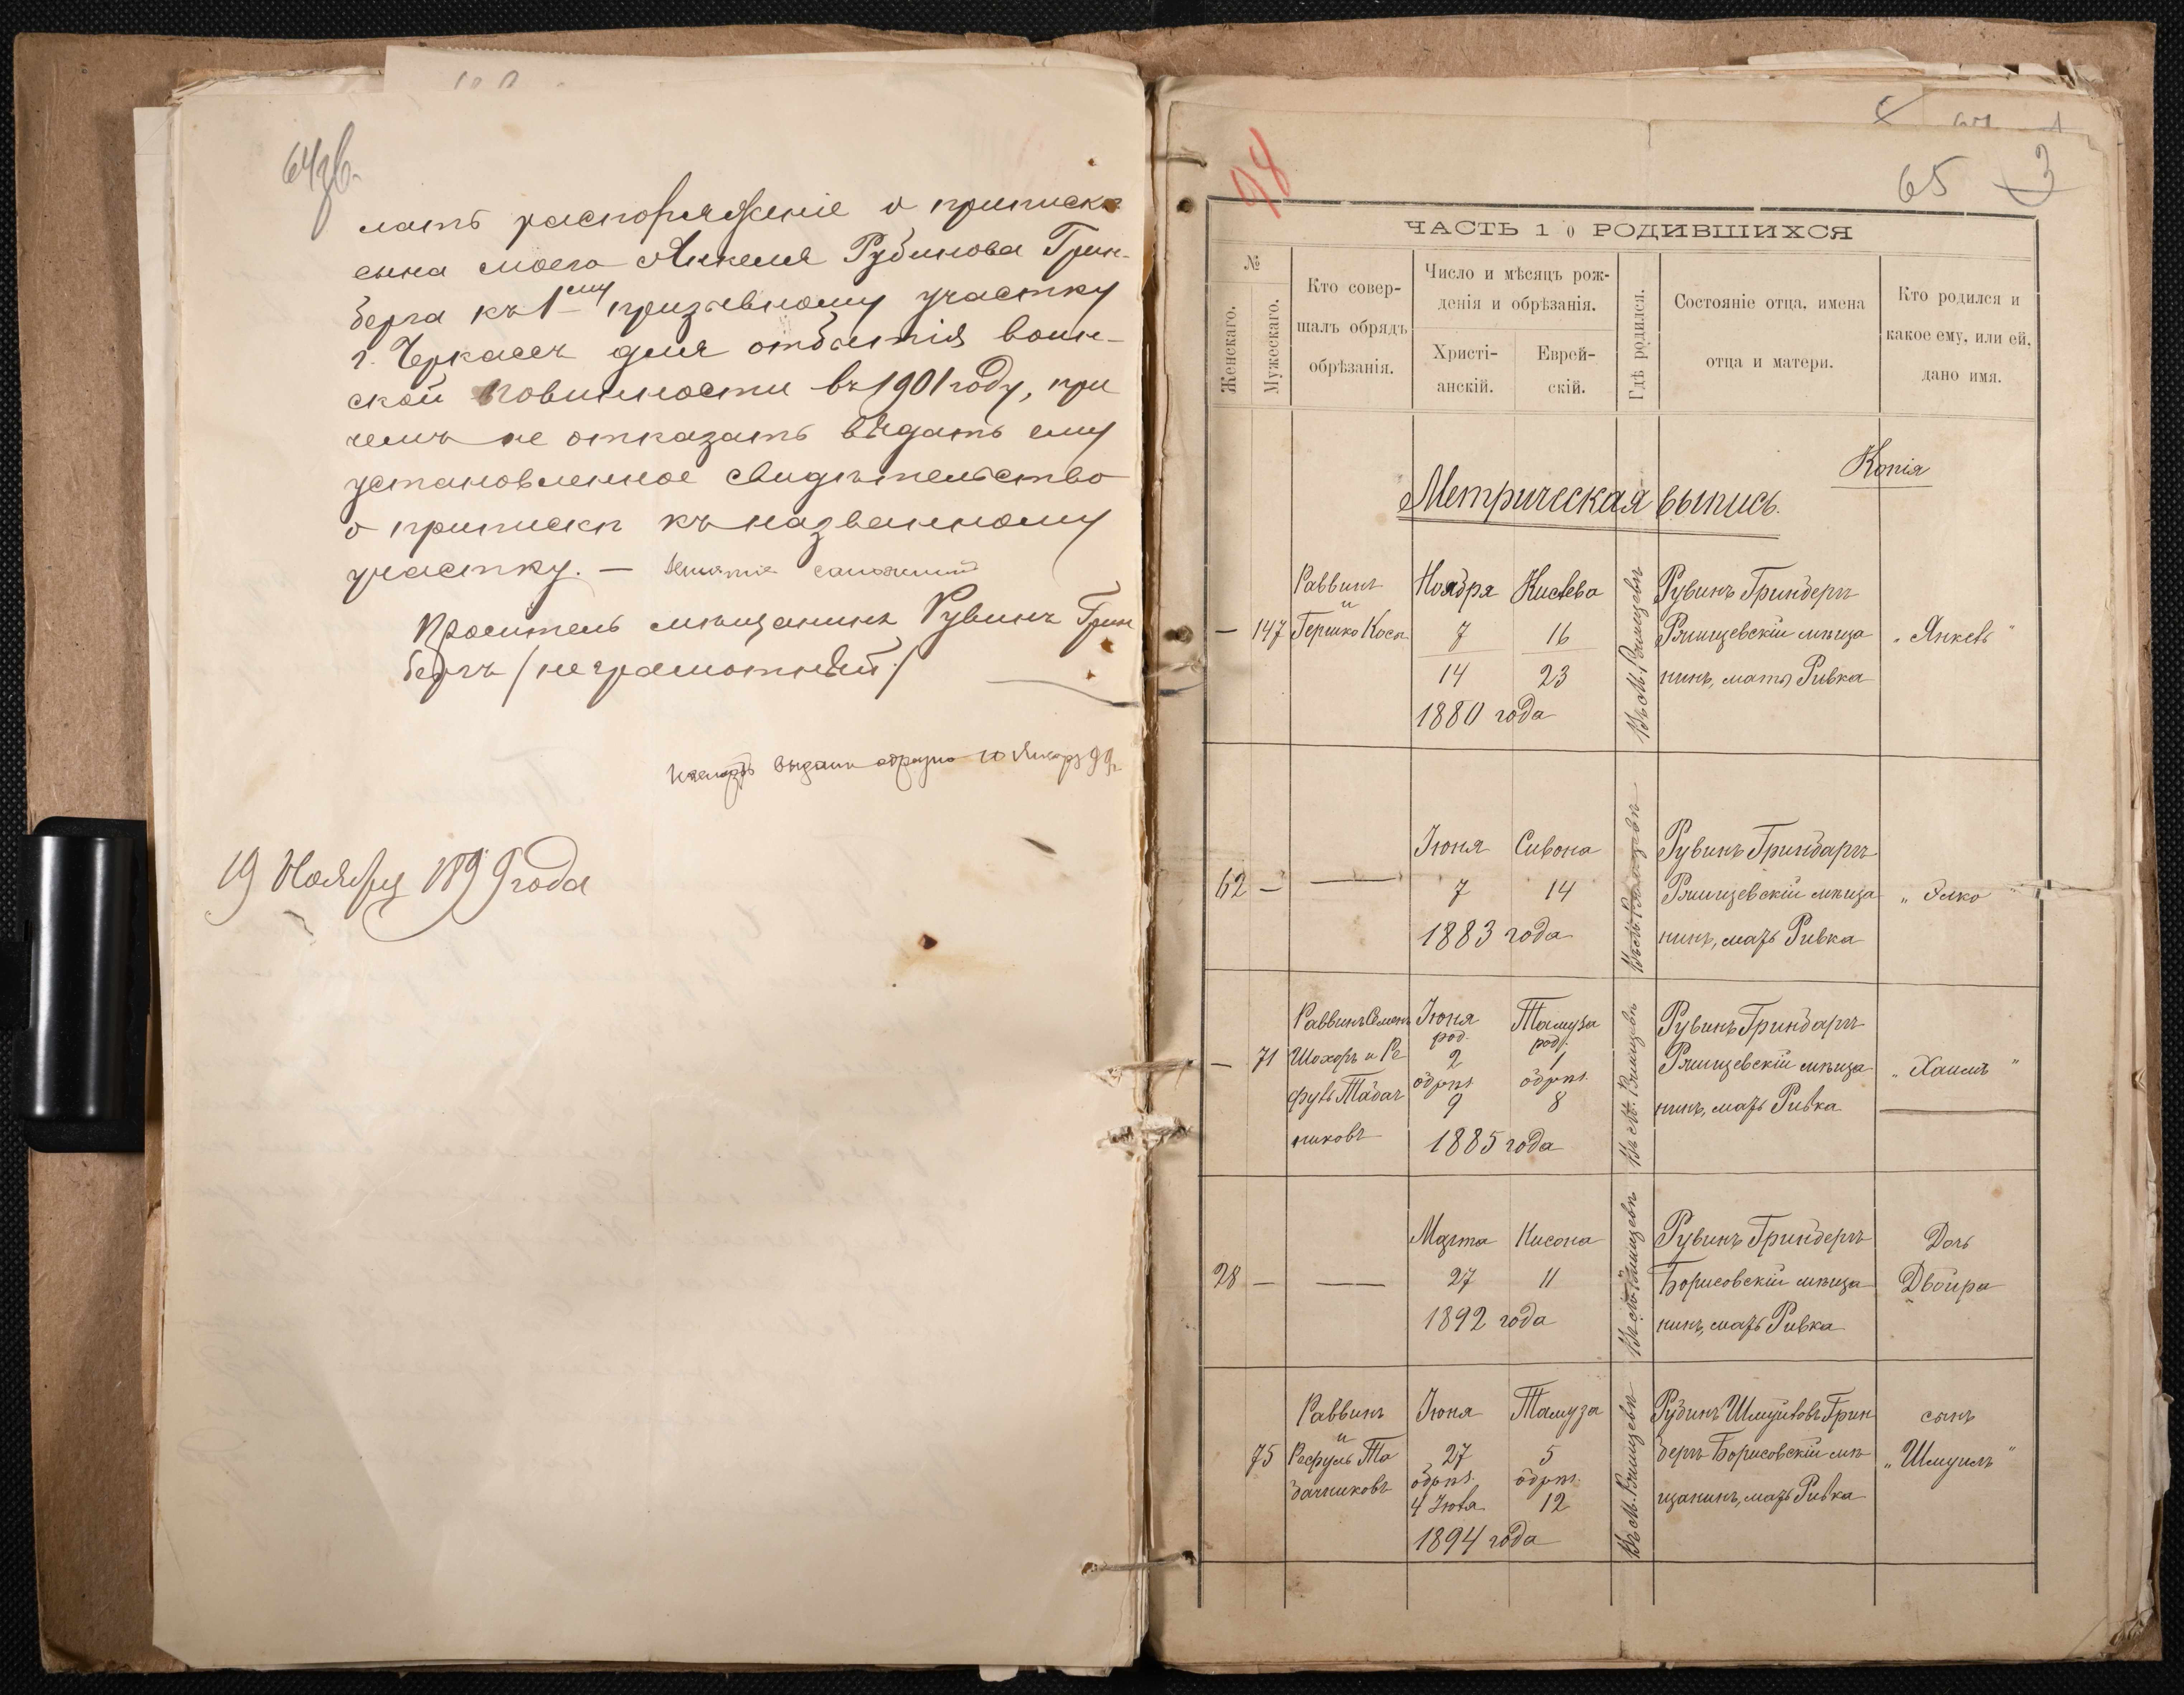 64 об.
лать распоряженіе о приписке
сына моего Янкеля Рубинова Грин-
берга къ 1-ому призывному участку
г. Черкассъ для отбытія воин-
ской повинности въ 1901 году, при
чемъ не отказать выдать ему
установленное свидѣтельство
о припискѣ къ названному
участку. —
Проситель мѣщанинъ Рувинъ Грин
бергъ /неграмотный/
выданъ обратно 10 Января 99 г.
19 Ноября 1899 года
98
65
3
ЧАСТЬ 1 о РОДИВШИХСЯ
№
Женскаго.
Мужескаго.
Кто совер-
шалъ обрядъ
обрѣзанія.
Число и мѣсяцъ рож-
денія и обрѣзанія.
Христі-
анскій.
Еврей-
скій.
Гдѣ родился.
Состояніе отца, имена
отца и матери.
Кто родился и
какое ему, или ей,
дано имя.
Копія
Метрическая выпись.
— 147
Раввинъ
и
Гершко Косъ
Ноября Кислева
7 16
14 23
1880 года
Въ М. Ржищевѣ
Рувинъ Гринбергъ
Ржищевскій мѣща
нинъ, мать Ривка
„Янкель"
62 —
—
Іюня Сивона
7 14
1883 года
Въ М. Ржищевѣ
Рувинъ Гринбаргъ
Ржищевскій мѣща
нинъ, мать Ривка
„Элко"
— 71
Раввинъ Семенъ
Шохоръ и Ре
фулъ Табач
никовъ
Іюня Тамуза
род. род.
2 1
обрѣз. обрѣз.
9 8
1885 года
Въ М. Ржищевѣ
Рувинъ Гринбаргъ
Ржищевскій мѣща
нинъ, мать Ривка
„Хаимъ"
28 —
—
Марта Нисона
27 11
1892 года
Въ М. Ржищевѣ
Рувинъ Гринбергъ
Борисовскій мѣща
нинъ, мать Ривка
Дочь
Двойра
75
Раввинъ
и
Рефуль Та
бачниковъ
Іюня Тамуза
27 5
обрѣз. обрѣз.
4 Іюля 12
1894 года
Въ М. Ржищевѣ
Рубинъ Шмуйловъ Грин
бергъ Борисовскій мѣ
щанинъ, мать Ривка
сынъ
„Шмуилъ"